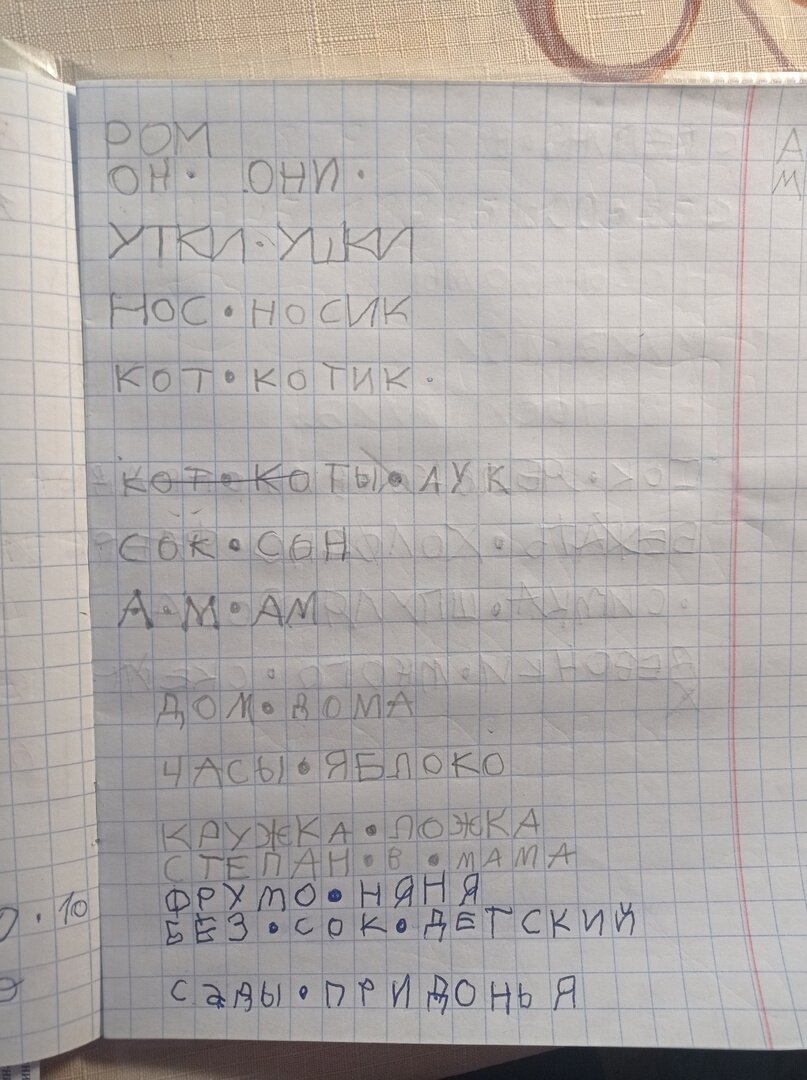 РОМ
ОН · ОНИ ·
УТКИ · УШКИ
НОС · НОСИК
КОТ · КОТИК ·
КОТ · КОТЫ · АУК
СОК · СОН
А · М · АМ
ДОМ · ДОМА
ЧАСЫ · ЯБЛОКО
КРУЖКА · ЛОЖКА
СТЕПАН · В · МАМА
ФРУМО · НЯНЯ
БЕЗ · СОК · ДЕТСКИЙ
САДЫ · ПРИДОНЬЯ
· 10
А
М